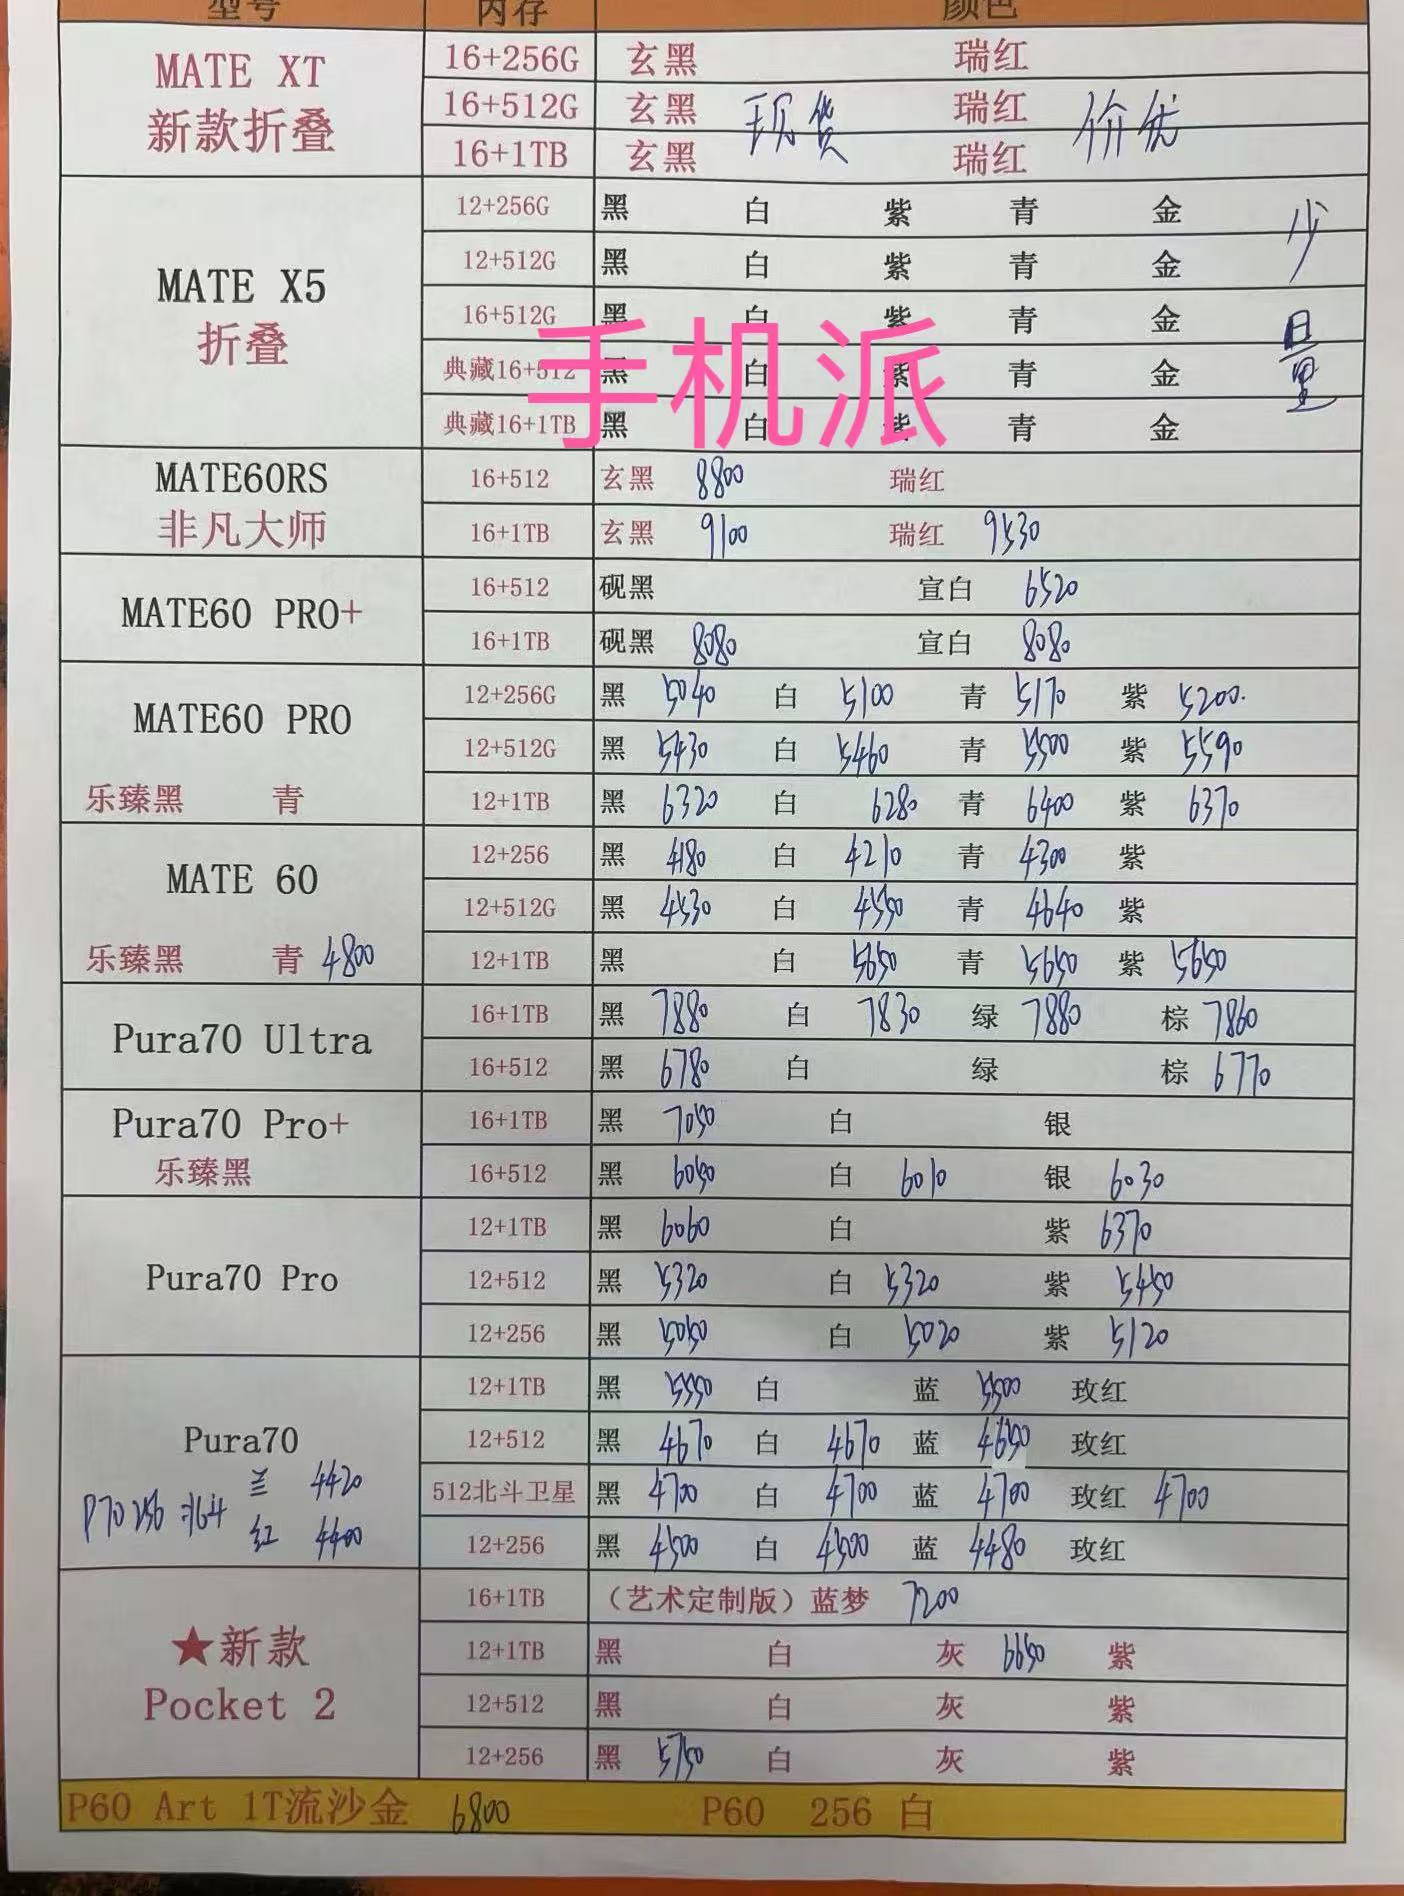 型号 内存 颜色
MATE XT 新款折叠
16+256G 玄黑 瑞红
16+512G 玄黑 现货 瑞红 价优
16+1TB 玄黑 瑞红
MATE X5 折叠
12+256G 黑 白 紫 青 金 少量
12+512G 黑 白 紫 青 金
16+512G 黑 白 紫 青 金
典藏16+512 黑 白 紫 青 金
典藏16+1TB 黑 白 紫 青 金
手机派
MATE60RS 非凡大师
16+512 玄黑 8800 瑞红
16+1TB 玄黑 9100 瑞红 9530
MATE60 PRO+
16+512 砚黑 宣白 6520
16+1TB 砚黑 8080 宣白 8080
MATE60 PRO
12+256G 黑 5040 白 5100 青 5170 紫 5200.
12+512G 黑 5430 白 5460 青 5500 紫 5590
乐臻黑 青
12+1TB 黑 6320 白 6280 青 6400 紫 6370
MATE 60
12+256 黑 4180 白 4210 青 4300 紫
12+512G 黑 4530 白 4550 青 4640 紫
乐臻黑 青 4800
12+1TB 黑 白 5650 青 5650 紫 5650
Pura70 Ultra
16+1TB 黑 7880 白 7830 绿 7880 棕 7860
16+512 黑 6780 白 绿 棕 6770
Pura70 Pro+
乐臻黑
16+1TB 黑 7050 白 银
16+512 黑 6050 白 6010 银 6030
Pura70 Pro
12+1TB 黑 6060 白 紫 6370
12+512 黑 5320 白 5320 紫 5450
12+256 黑 5050 白 5020 紫 5120
Pura70
P70 256 北斗 兰 4420
红 4400
12+1TB 黑 5550 白 蓝 5500 玫红
12+512 黑 4670 白 4670 蓝 4650 玫红
512北斗卫星 黑 4700 白 4700 蓝 4700 玫红 4700
12+256 黑 4500 白 4500 蓝 4480 玫红
★新款
Pocket 2
16+1TB （艺术定制版）蓝梦 7200
12+1TB 黑 白 灰 6650 紫
12+512 黑 白 灰 紫
12+256 黑 5750 白 灰 紫
P60 Art 1T流沙金 6800 P60 256 白